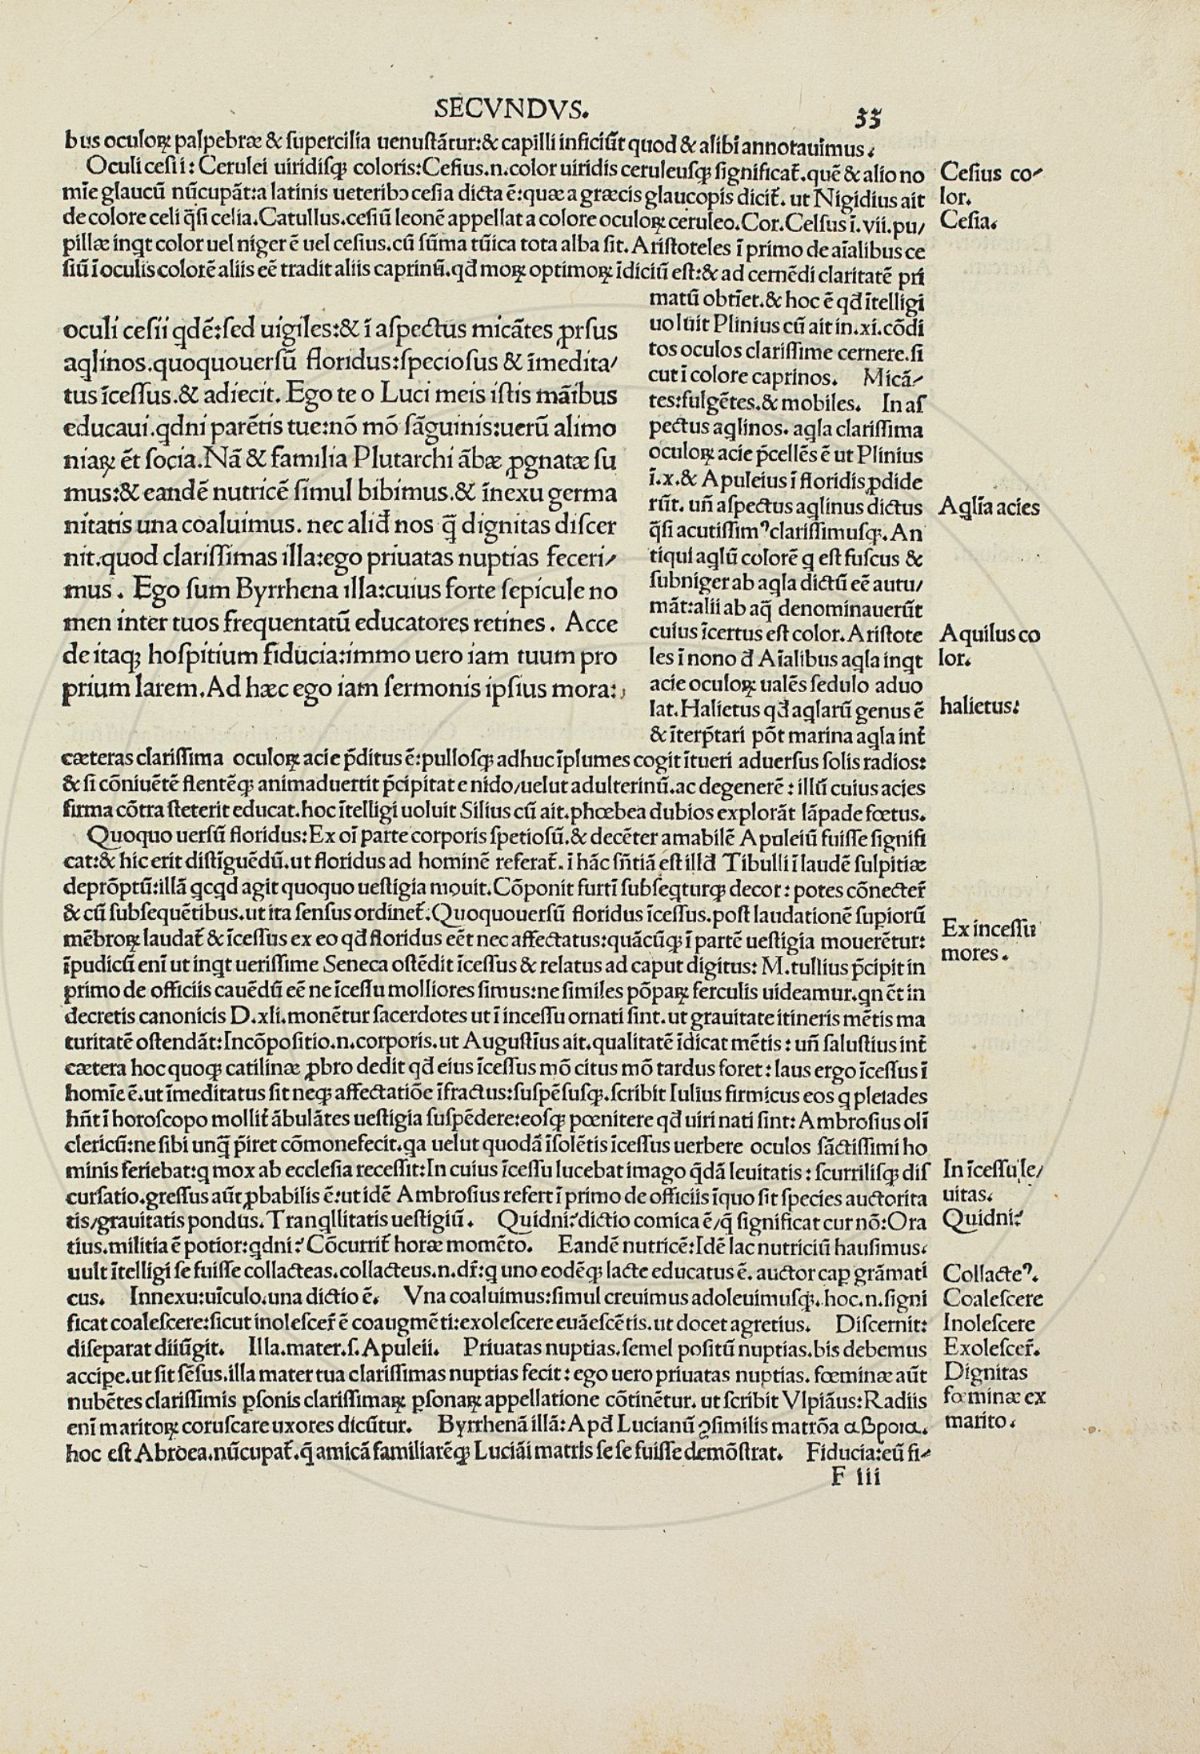 SECVNDVS.
33
bus oculoꝝ palpebræ & supercilia uenustātur:& capilli inficiūt quod & alibi annotauimus.
Oculi cesii: Cerulei uiridisqꝫ coloris: Cesius.n.color uiridis ceruleusqꝫ significat̄.quē & alio no
mīe glaucū nūcupāt:a latinis ueteribꝰ cesia dicta ē:quæ a græcis glaucopis dicit̄. ut Nigidius ait
de colore celi q̄si celia. Catullus.cesiū leonē appellat a colore oculoꝝ ceruleo.Cor.Celsus ī.vii.pu/
pillæ inqt color uel niger ē uel cesius.cū sūma tūica tota alba sit. Aristoteles ī primo de aīalibus ce
siū ī oculis colorē aliis eē tradit aliis caprinū.qđ moꝝ optimoꝝ īdiciū est:& ad cernēdi claritatē pri
matū obtīet.& hoc ē qđ ītelligi
uoluit Plinius cū ait in.xi.cōdi
tos oculos clarissime cernere.si
cut ī colore caprinos. Micā/
tes:fulgētes.& mobiles. In as
pectus aqlinos. aqla clarissima
oculoꝝ acie p̄cellēs ē ut Plinius
ī.x.& Apuleius ī floridis ꝓdide
rūt. uñ aspectus aqlinus dictus
q̄si acutissimꝰ clarissimusqꝫ. An
tiqui aqlū colorē q est fuscus &
subniger ab aqla dictū eē autu/
māt:alii ab aq̄ denominauerūt
cuius īcertus est color. Aristote
les ī nono đ Aīalibus aqla inqt
acie oculoꝝ ualēs sedulo aduo
lat. Halietus qđ aqlarū genus ē
& īterp̄tari pōt marina aqla int̄
oculi cesii qdē:sed uigiles:& ī aspectus micātes ꝓrsus
aqlinos.quoquouersū floridus:speciosus & īmedita/
tus īcessus.& adiecit. Ego te o Luci meis istis māibus
educaui.qdni parētis tue:nō mō sāguinis:uerū alimo
niaꝝ ēt socia.Nā & familia Plutarchi ābæ ꝓgnatæ su
mus:& eandē nutricē simul bibimus.& īnexu germa
nitatis una coaluimus. nec aliđ nos q̄ dignitas discer
nit.quod clarissimas illa:ego priuatas nuptias feceri/
mus. Ego sum Byrrhena illa:cuius forte sepicule no
men inter tuos frequentatū educatores retines. Acce
de itaqꝫ hospitium fiducia:immo uero iam tuum pro
prium larem.Ad hæc ego iam sermonis ipsius mora:
cæteras clarissima oculoꝝ acie p̄ditus ē:pullosqꝫ adhuc īplumes cogit ītueri aduersus solis radios:
& si cōniuētē flentēqꝫ animaduertit p̄cipitat e nido/uelut adulterinū.ac degenerē: illū cuius acies
firma cōtra steterit educat.hoc ītelligi uoluit Silius cū ait.phœbea dubios explorāt lāpade fœtus.
Quoquo uersū floridus:Ex oī parte corporis spetiosū.& decēter amabilē Apuleiū fuisse signifi
cat:& hic erit distīguēdū.ut floridus ad hominē referat̄. ī hāc sñtiā est illđ Tibulli ī laudē sulpitiæ
deprōptū:illā qcqđ agit quoquo uestigia mouit.Cōponit furtī subseqturqꝫ decor: potes cōnecter̄
& cū subsequētibus.ut ita sensus ordinet̄.Quoquouersū floridus īcessus.post laudationē supiorū
mēbroꝝ laudat̄ & īcessus ex eo qđ floridus eēt nec affectatus:quācūqꝫ ī partē uestigia mouerētur:
īpudicū enī ut inqt uerissime Seneca ostēdit īcessus & relatus ad caput digitus: M.tullius p̄cipit in
primo de officiis cauēdū eē ne īcessu molliores simus:ne similes pōpaꝝ ferculis uideamur.qn ēt in
decretis canonicis D.xli.monētur sacerdotes ut ī incessu ornati sint. ut grauitate itineris mētis ma
turitatē ostendāt:Incōpositio.n.corporis.ut Augustīus ait.qualitatē īdicat mētis: uñ salustius int̄
cætera hoc quoqꝫ catilinæ ꝓbro dedit qđ eius īcessus mō citus mō tardus foret: laus ergo īcessus ī
homīe ē.ut īmeditatus sit neqꝫ affectatiōe īfractus:suspēsusqꝫ.scribit Iulius firmicus eos q pleiades
hñt ī horoscopo mollit̄ ābulātes uestigia suspēdere:eosqꝫ pœnitere qđ uiri nati sint: Ambrosius olī
clericū:ne sibi unq̄ p̄iret cōmonefecit.qa uelut quodā īsolētis īcessus uerbere oculos sāctissimi ho
minis feriebat:q mox ab ecclesia recessit:In cuius īcessu lucebat imago q̄dā leuitatis: scurrilisqꝫ dis
cursatio.gressus aūt ꝓbabilis ē:ut idē Ambrosius refert ī primo de officiis īquo sit species auctorita
tis/grauitatis pondus. Tranqllitatis uestigiū. Quidni?dictio comica ē/q̄ significat cur nō:Ora
tius.militia ē potior:qdni? Cōcurrit̄ horæ momēto. Eandē nutricē:Idē lac nutriciū hausimus.
uult ītelligi se fuisse collacteas.collacteus.n.dr̄:q uno eodēqꝫ lacte educatus ē. auctor cap grāmati
cus. Innexu:uīculo.una dictio ē. Vna coaluimus:simul creuimus adoleuimusqꝫ.hoc.n.signi
ficat coalescere:sicut inolescer̄ ē coaugmēti:exolescere euāescētis.ut docet agretius. Discernit:
diseparat diiūgit. Illa.mater.s.Apuleii. Priuatas nuptias.semel positū nuptias.bis debemus
accipe.ut sit sēsus.illa mater tua clarissimas nuptias fecit: ego uero priuatas nuptias. fœminæ aūt
nubētes clarissimis ꝑsonis clarissimaꝝ ꝑsonaꝝ appellatione cōtinētur. ut scribit Vlpiāus: Radiis
enī maritoꝝ coruscare uxores dicūtur. Byrrhenā illā: Apđ Lucianū ꝯsimilis matrōa αβροια.
hoc est Abroea.nūcupat̄.q̄ amicā familiarēqꝫ Luciāi matris se se fuisse demōstrat. Fiducia:eū fi/
F iii
Cesius co/
lor.
Cesia.
Aqlīa acies
Aquilus co
lor.
halietus:
Ex incessu
mores.
In īcessu le/
uitas.
Quidni?
Collacteꝰ.
Coalescere
Inolescere
Exolescer̄.
Dignitas
fœminæ ex
marito.